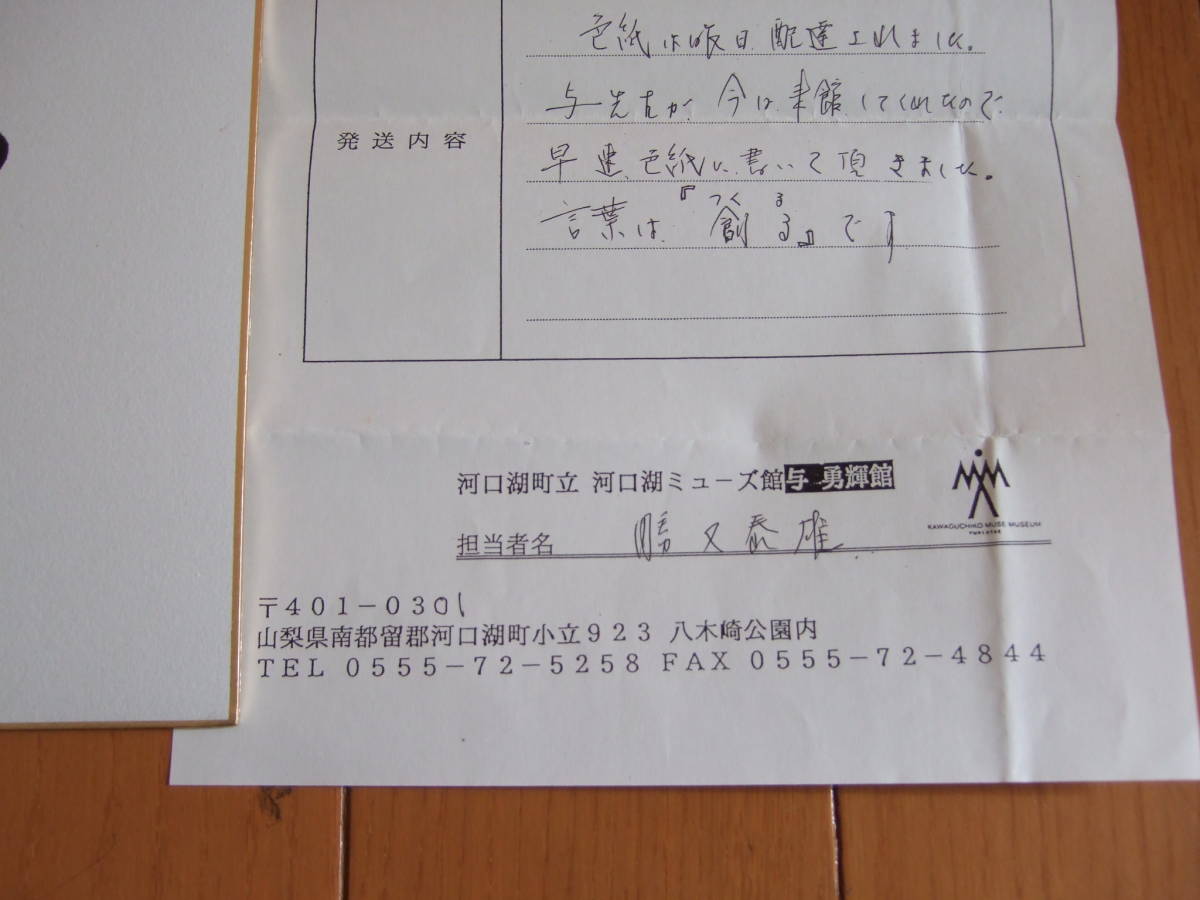 色紙は昨日配達されました。
与先生が、今日来館してくれたので
発送内容
早速、色紙に書いて頂きました。
つくる
言葉は『創る』です
河口湖町立 河口湖ミューズ館与 勇輝館
KAWAGUCHIKO MUSE MUSEUM
担当者名 勝又泰雄
〒401-0301
山梨県南都留郡河口湖町小立923 八木崎公園内
TEL 0555-72-5258 FAX 0555-72-4844